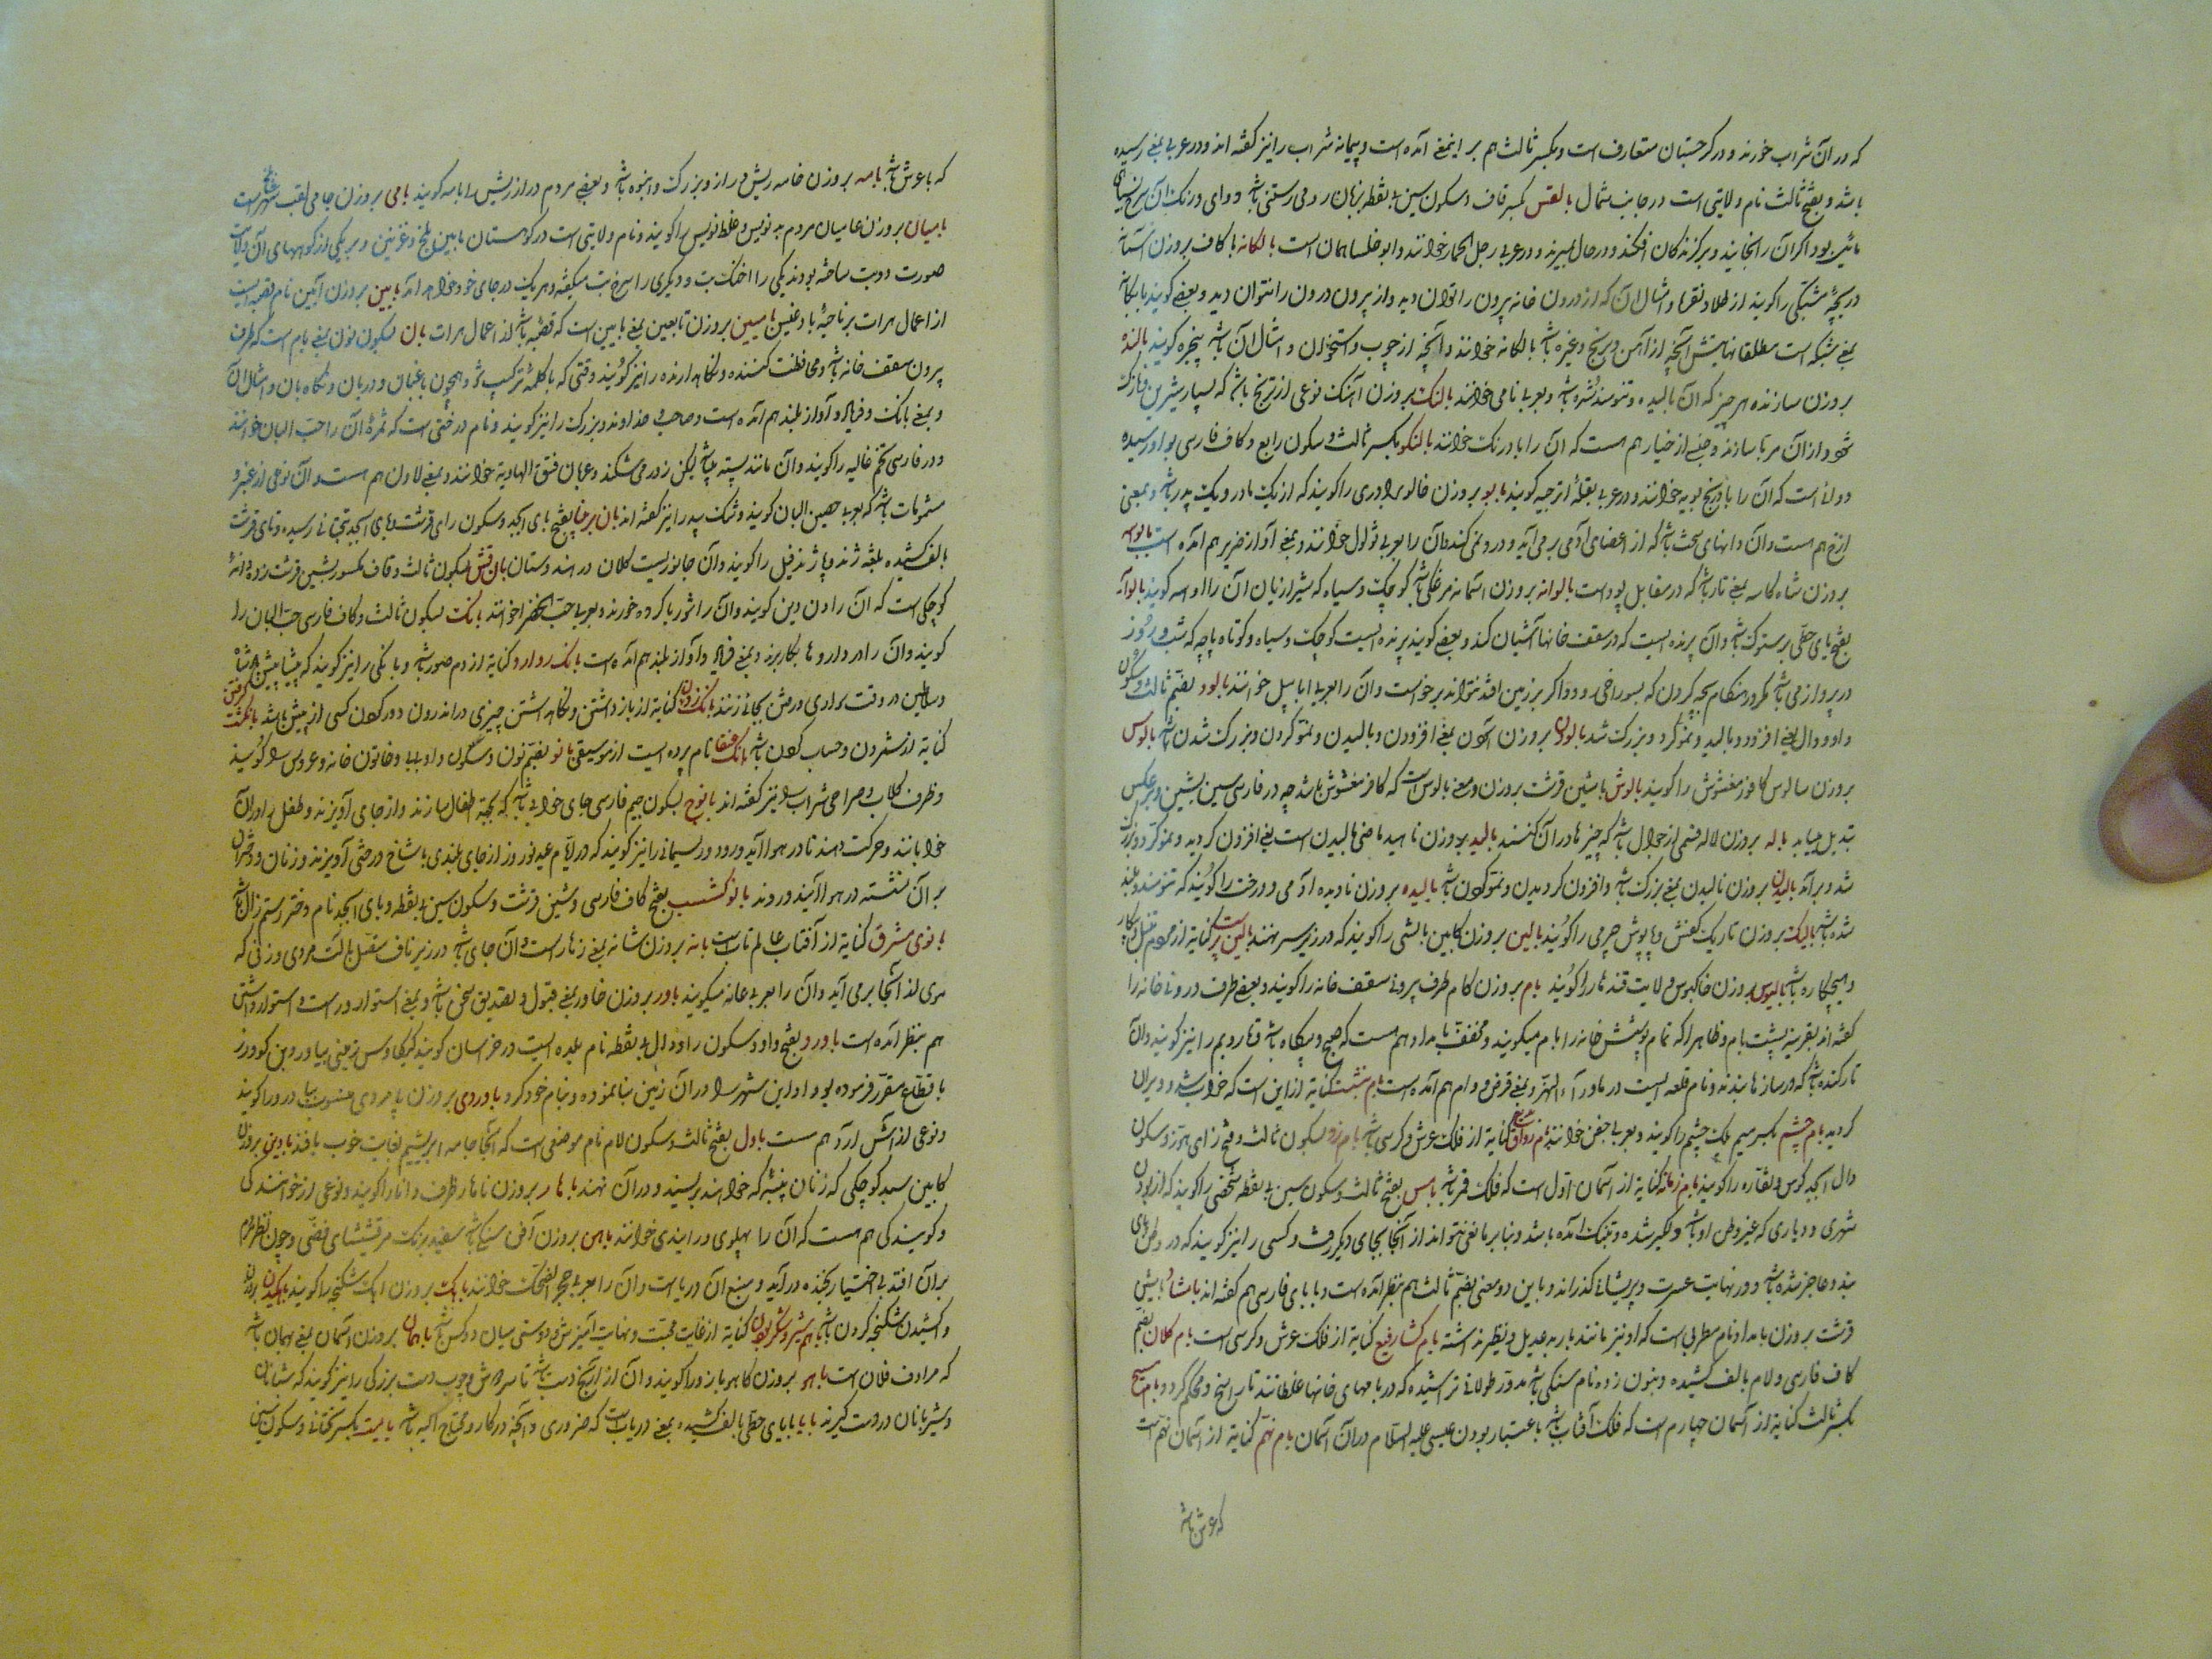 که در آن شراب خورند و در گرجستان متعارف است و بکسر ثالث هم بر اینمعنی آمده است و پیمانه شراب را نیز گفته اند و در عربی بمعنی رسیده
باشد و بفتح ثالث نام ولایتی است در جانب شمال بالقس بکسر قاف و سکون سین بی نقطه بزبان رومی رستنی باشد دوای و رنگ آن سرخ
بود اگر آن را بخایند و بر گزنده کان افکنند در حال بمیرند و در عربی رجل الحمار خوانند و ابو خلسا همان است بالکانه با کاف بروزن آستانه
دریچه مشبکی را گویند از طلا و نقره و امثال آن که از درون خانه بیرون را توان دید و از بیرون درون را نتوان دید و بعضی گویند بالکانه
بمعنی مشبکه است مطلقا نهایتش آنچه از آهن و برنج و غیره باشد بالکانه خوانند و آنچه از چوب و استخوان و امثال آن باشد پنجره گویند بالنده
بروزن سازنده هر چیز که آن بالیده و تنومند شده باشد و بعربی نامی خوانند بالنک بروزن آهنک نوعی از ترنج باشد که بسیار شیرین و نازک
شود و از آن مربا سازند و جنسی از خیار هم هست که آن را بادرنک خوانند بالنکو بکسر ثالث و سکون رابع و کاف فارسی بواو رسیده
دوائی است که آن را بادرنج بویه خوانند و در عربی بقلهٔ اترجیه گویند بالو بروزن خالو برادری را گویند که از یک مادر و یک پدر باشد و بمعنی
ازخ هم هست و آن دانهای سخت باشد که از اعضای آدمی بر می آید و درد نمی کند و آن را بعربی ثولول خوانند و بمعنی آواز حزیر هم آمده است بالوسه
بروزن شاه کاسه بمعنی تار باشد که در مقابل پود است بالوانه بروزن آسمانه مرغکی باشد کوچک و سیاه که شیرازیان آن را لوسه گویند بالوایه
بفتح یای حطی پرستوک باشد و آن پرنده ایست که در سقف خانها آشیان کند و بعضی گویند پرنده ایست کوچک و سیاه و کوتاه پاچه که شب و روز
در پرواز می باشد مگر در هنگام بچه کردن که بسوراخی رود و اگر بر زمین افتد نتواند برخواست و آن را بعربی ابابیل خوانند بالود بضم ثالث و سکون
واو و دال یعنی افزود و بالید و نمو کرد و بزرگ شد بالودن بروزن آسودن بمعنی افزودن و بالیدن و نمو کردن و بزرک شدن باشد بالوس
بروزن سالوس کافور مغشوش را گویند بالوش با شین قرشت بروزن و معنی بالوس است که کافور مغشوش باشد چه در فارسی سین بشین و بر عکس
تبدیل می یابد باله بروزن لاله قسمی از جوال باشد که چیزها در آن کنند بالید بروزن ناهید ماضی بالیدن است یعنی افزون گردید و نمو کرد و بزرگ
شد و برآمد بالیدن بروزن نالیدن بمعنی بزرگ شدن و افزون گردیدن و نمو کردن باشد بالیده بروزن نادیده آدمی و درخت را گویند که تنومند و بلند
شده باشد بالیک بروزن تاریک کفش و پاپوش چرمی را گویند بالین بروزن کابین بالشی را گویند که در زیر سر نهند بالین پرست کنایه از مردم تنبل و بیکار
و هیچکاره باشد بالیوس بروزن خاکبوس ولایت قندهار را گویند بام بروزن کام طرف بیرونی سقف خانه را گویند و بعضی طرف درونی خانه را
گفته اند بقرینه پشت بام و ظاهرا که تمام پوشش خانه را بام میگویند و مخفف بامداد هم هست که صبح و پگاه باشد و تار و بم را نیز گویند و آن
تار کنده باشد که در سازها بندند و نام قلعه ایست در ماوراء النهر و بمعنی قرض و وام هم آمده است بام نشست کنایه از این است که خراب شد و ویران
گردید بام چشم بکسر میم پلک چشم را گویند و بعربی جفن خوانند بام رواق کنایه از فلک عرش و کرسی باشد بام زد بسکون ثالث و فتح زای هوز و سکون
دال ابجد کوس و نقاره را گویند بام زمانه کنایه از آسمان اول است که فلک قمر باشد بامس بفتح ثالث و سکون سین بی نقطه شخصی را گویند که از بودن
شهری و دیاری که غیر وطن او باشد دلگیر شده و بتنگ آمده باشد و بنا بر مانعی نتواند از آنجا بجای دیگر رفت و کسی را نیز گویند که در وطن
بند و عاجز شده باشد و در نهایت عسرت و پریشانی گذراند و باین دو معنی بضم ثالث هم بنظر آمده است و با بای فارسی هم گفته اند بامشاد با شین
قرشت بروزن بامداد نام مطربی است که او نیز مانند باربد عدیل و نظیر نداشته بام گشاد رفیع کنایه از فلک عرش و کرسی است بام گلان بضم
کاف فارسی و لام بالف کشیده و بنون زده نام سنگی باشد مدور طولانی تراشیده که در بامهای خانها غلطانند تا راسخ و محکم گردد بام مسیح
بکسر ثالث کنایه از آسمان چهارم است که فلک آفتاب باشد باعتبار بودن عیسی علیه السلام در آن آسمان بام نهم کنایه از آسمان نهم است
که عرش باشد
که باعرش باشد بامه بروزن خامه ریش دراز و بزرگ و انبوه باشد و بعضی مردم دراز ریش را بامه گویند بامی بروزن جامی لقب شهر بلخ است
بامیان بروزن عامیان مردم بد نویس و غلط نویس را گویند و نام ولایتی است در کوهستان مابین بلخ و غزنین و بر یکی از کوههای آن ولایت
صورت دو بت ساخته بودند یکی را خنک بت و دیگری را سرخ بت میگفتند و هر یک در جای خود خواهد آمد بامین بروزن آیین نام قصبه ایست
از اعمال هرات بر ناحیهٔ بادغیس بامیین بروزن تابعین بمعنی بامین است که قصبه باشد از اعمال هرات بان بسکون نون بمعنی بام است که طرف
بیرون سقف خانه باشد و محافظت کننده و نگاه دارنده را نیز گویند وقتی که با کلمهٔ ترکیب شود همچون باغبان و دربان و نگاه بان و امثال آن
و بمعنی بانک و فریاد و آواز بلند هم آمده است و صاحب و خداوند و بزرگ را نیز گویند و نام درختی است که ثمرهٔ آن را حب البان خوانند
و در فارسی تخم غالیه را گویند و آن مانند پسته باشد لیکن زود می شکند و عربان فستق الهاویه خوانند و بمعنی لادن هم هست و آن نوعی از عنبر و
مشمومات باشد که بعربی حصین البان گویند و مشک بید را نیز گفته اند بان بربتا بفتح بای ابجد و سکون رای قرشت و بای ابجد بتحتانی رسیده و تای قرشت
بالف کشیده بلغه ژند و پاژند فیل را گویند و آن جانوریست کلان در هندوستان بان قش بسکون ثالث و قاف مکسور بشین قرشت زده دانهٔ
کوچکی است که آن را ون و بن گویند و آن را شور با کرده خورند و بعربی حب الخضرا خوانند بانک بسکون ثالث و کاف فارسی حب البان را
گویند و آن را در داروها بکار برند و بمعنی فریاد و آواز بلند هم آمده است بانک روارو کنایه از دم صور باشد و بانگی را نیز گویند که پیشاپیش پادشاهان
و سلاطین در وقت سواری و رفتن بجائی زنند بانک زدن کنایه از باز داشتن و نگاه داشتن چیزی و راندن و دور کردن کسی از پیش باشد بانگشت گرفتن
کنایه از شمردن و حساب کردن باشد بانک عنقا نام پرده ایست از موسیقی بانو بضم نون و سکون واو بی بی و خاتون خانه و عروس را گویند
و ظرف گلاب و صراحی شراب را نیز گفته اند بانوج بسکون جیم فارسی جای خوابی باشد که بجهة اطفال سازند و از جای آویزند و طفل را در آن
خوابانند و حرکت دهند تا در هوا آید و رود و ریسمانی را نیز گویند که در ایام عید نوروز از جای بلندی یا شاخ درختی آویزند و زنان و دختران
بر آن نشسته در هوا آیند و روند بانو گشسب بفتح کاف فارسی و شین قرشت و سکون سین بی نقطه و بای ابجد نام دختر رستم زال باشد
بانوی مشرق کنایه از آفتاب عالم تاب است بانه بروزن شانه بمعنی زهار است و آن جای باشد در زیر ناف متصل بآلت مردی و زنی که
موی از آنجا بر می آید و آن را بعربی عانه میگویند باور بروزن خاور بمعنی قبول و تصدیق سخن باشد و بمعنی استوار و راست و استوار داشتن
هم بنظر آمده است باورد بفتح واو و سکون را و دال بی نقطه نام بلده ایست در خراسان گویند کیکاوس زمینی بباورد بن گودرز
باقطاع مقرر فرموده بود او این شهر را در آن زمین بنا نموده و بنام خود کرد باوردی بروزن پامردی منسوب بباورد را گویند
و نوعی از آش آرد هم هست باول بفتح ثالث و سکون لام نام موضعی است که آنجا جامه ابریشیم بغایت خوب بافند باوین بروزن
کابین سبد کوچکی که زنان پنبه که خواهند بریسند در آن نهند باهار بروزن ناهار ظرف و انا را گویند و نوعی از خوانندگی
و گویندگی هم هست که آن را پهلوی و رامندی خوانند باهت بروزن آفت سنگی باشد سفید برنگ مرقشیشای فضی و چون نظر مردم
بر آن افتد بی اختیار بخنده در آید و منبع آن دریا است و آن را بعربی حجر الضحک خوانند باهک بروزن آهک شکنجه را گویند باهکیدن بروزن
واکشیدن شکنجه کردن باشد باهم شیر و شکر بودن کنایه از غایت محبت و نهایت آمیزش و دوستی میان دو کس باشد باهمان بروزن آسمان یعنی بهمان باشد
که مرادف فلان است باهو بروزن کاهو بازو را گویند و آن از آرنج دست باشد تا سر دوش و چوب دست بزرگی را نیز گویند که شبانان
و شتربانان در دست گیرند بایا بایای حطی بالف کشیده بمعنی دربایست که ضروری و آنچه در کار و محتاج الیه باشد بایست بکسر تحتانی و سکون سین